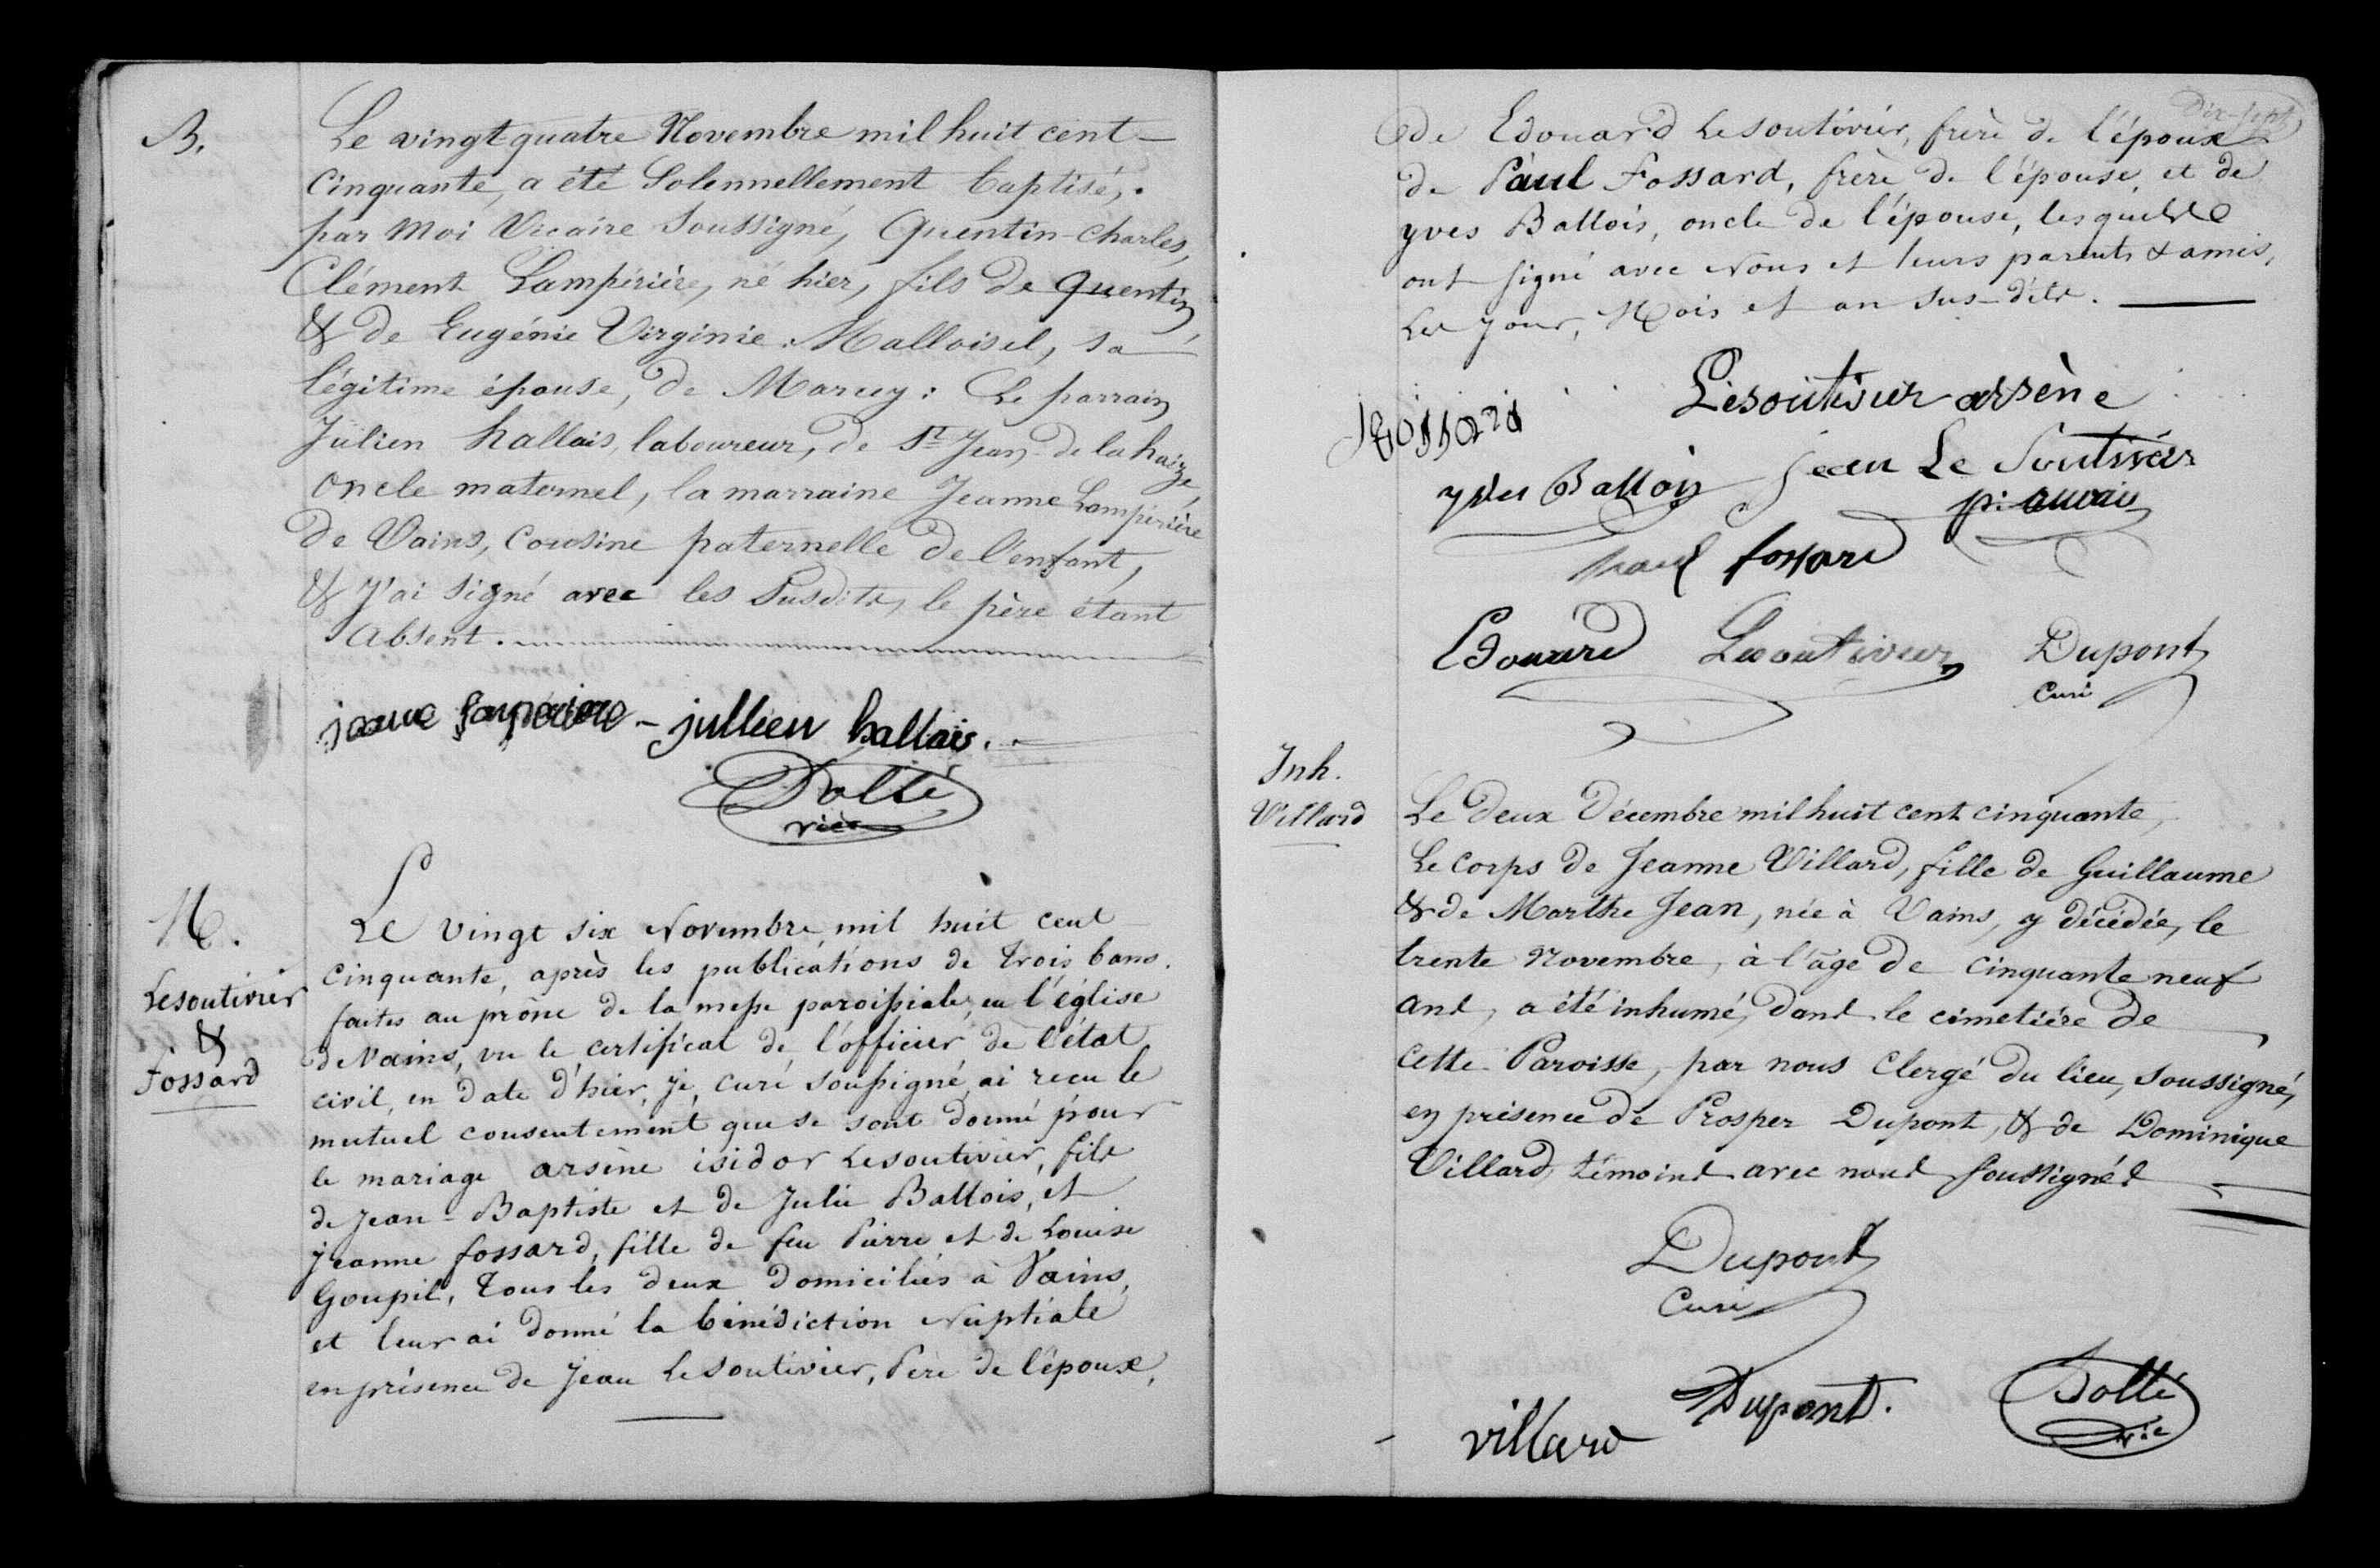 B.
Le vingt quatre Novembre mil huit cent
Cinquante, a été Solennellement baptisé,
par Moi Vicaire Soussigné, Quentin-Charles,
Clément Lampérière, né hier, fils de Quentin
& de Eugénie Virginie Malloisel, sa
légitime épouse, de Marcey : Le parrain
Julien hallais, laboureur, de St Jean de la haize,
Oncle maternel, la marraine Jeanne Lampérière
de Vains, Cousine paternelle de l'enfant,
& J'ai signé avec les Susdits, le père étant
Absent.
jeanne lampériere - jullien hallais.
Dolté
vic
M.
Lesoutivier
&
Fossard
Le vingt six Novembre, mil huit cent
cinquante, après les publications de trois bans.
faites au prône de la messe paroissiale, en l'église
de Vains, vu le certificat de l'officier de l'état
civil, en date d'hier, Je, curé soussigné, ai recu le
mutuel consentement que se sont donné pour
le mariage arsène isidor Lesoutivier, fils
de Jean-Baptiste et de Julie Ballois, et
Jeanne fossard, fille de feu Pierre et de Louise
Goupil, tous les deux domiciliés à Vains,
et leur ai donné la bénédiction Nuptiale
en présence de Jean Lesoutivier, Père de l'époux,
Dix-sept
de Edouard Lesoutivier, frère de l'époux
de Paul Fossard, frère de l'épouse, et de
yves Ballois, oncle de l'épouse, lesquels
ont signé avec Nous et leurs parents & amis,
Les jour, Mois et an sus-dits.
Lesoutivier arsène
J fossard
yves Ballois Jean Le Soutivier
p. auvais
paul fossard
Edouard Lesoutivier Dupont
Curé
Inh.
Villard
Le deux Décembre mil huit cent cinquante,
Le corps de Jeanne Villard, fille de Guillaume
& de Marthe Jean, née à Vains, y décédée, le
trente Novembre, à l'âge de cinquante neuf
ans, a été inhumé, dans le cimetière de
cette Paroisse, par nous Clergé du lieu, soussigné,
en présence de Prosper Dupont, & de Dominique
Villard, témoins avec nous soussignés
Dupont
Curé
villard Dupont. Dolté
vic